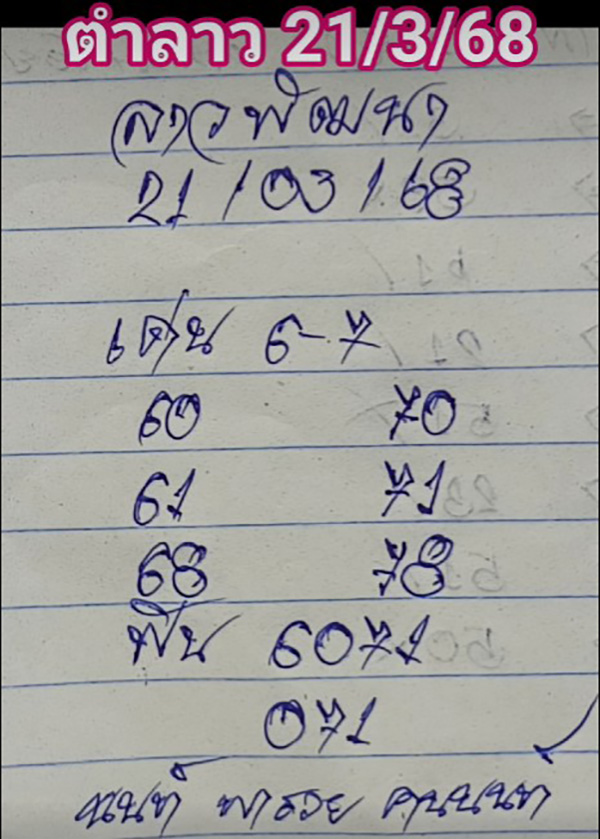 ตำลาว 21/3/68
ลาวพัฒนา
21/03/68
เด่น 6-7
60 70
61 71
68 78
ฟัน 6071
071
พารวย